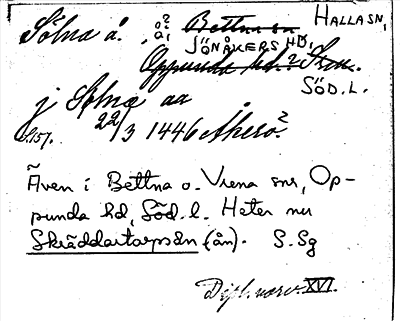 Sölna å. å? Bettna sn HALLA SN,
å, JÖNÅKERS HD,
Oppunda hd.? Srm.
SÖD. L.
j Solna aa
S. 157. 22/3 1446 Åkerö?
Även i Bettna o. Vrena snr, Op-
punda hd, Söd. l. Heter nu
Skräddartorpsån (ån). S. Sg
Dipl. norv. XVI.